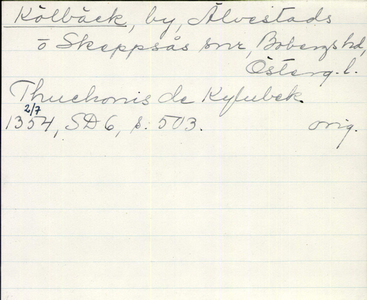 Kölbäck, by, Älvestads
o Skeppsås snr, Bobergs hd,
Österg. l.
Thuchonis de Kylubek.
2/7
1354, SD 6, s. 503. orig.